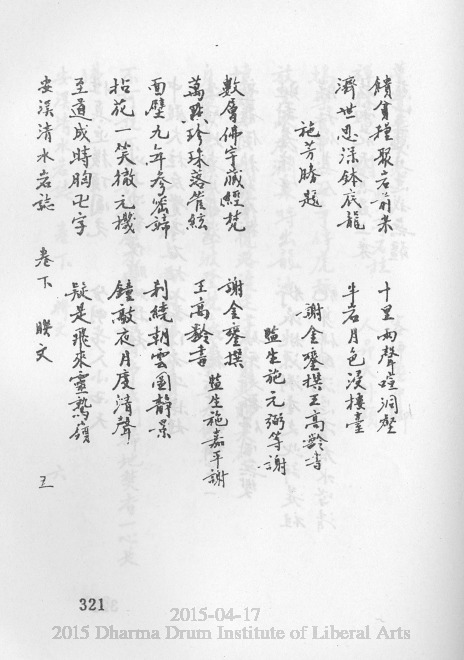 饋貧種聚岩前米　十里雨聲喧洞壑
濟世恩深鉢底龍　半岩月色沒樓臺
施芳勝題　謝金鑾撰王高齡書
監生施元弼等謝
數層佛宇藏經梵　謝金鑾撰
萬點珍珠落管絃　王高齡書　監生施嘉平謝
面壁九年參密諦　刹繞朝雲圖靜景
拈花一笑徹元機　鐘敲夜月度清聲
至道成時胸卍字　疑是飛來靈鷲嶺
安溪清水岩誌　卷下　聯文　五
321
2015-04-17
2015 Dharma Drum Institute of Liberal Arts